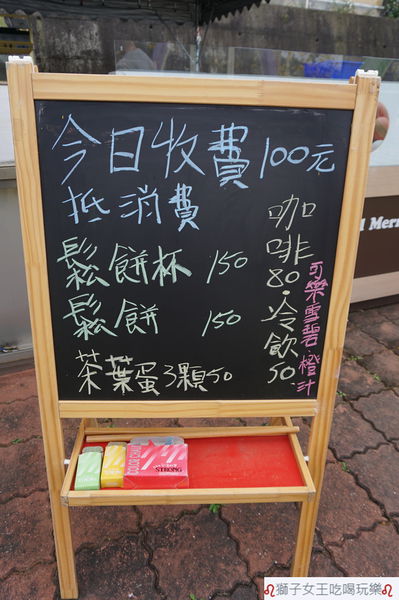 今日收費100元
抵消費
鬆餅杯 150
鬆餅 150
茶葉蛋3顆50
咖啡80.冷飲50.
可樂雪碧橙汁
STRONG
l Merm
獅子女王吃喝玩樂